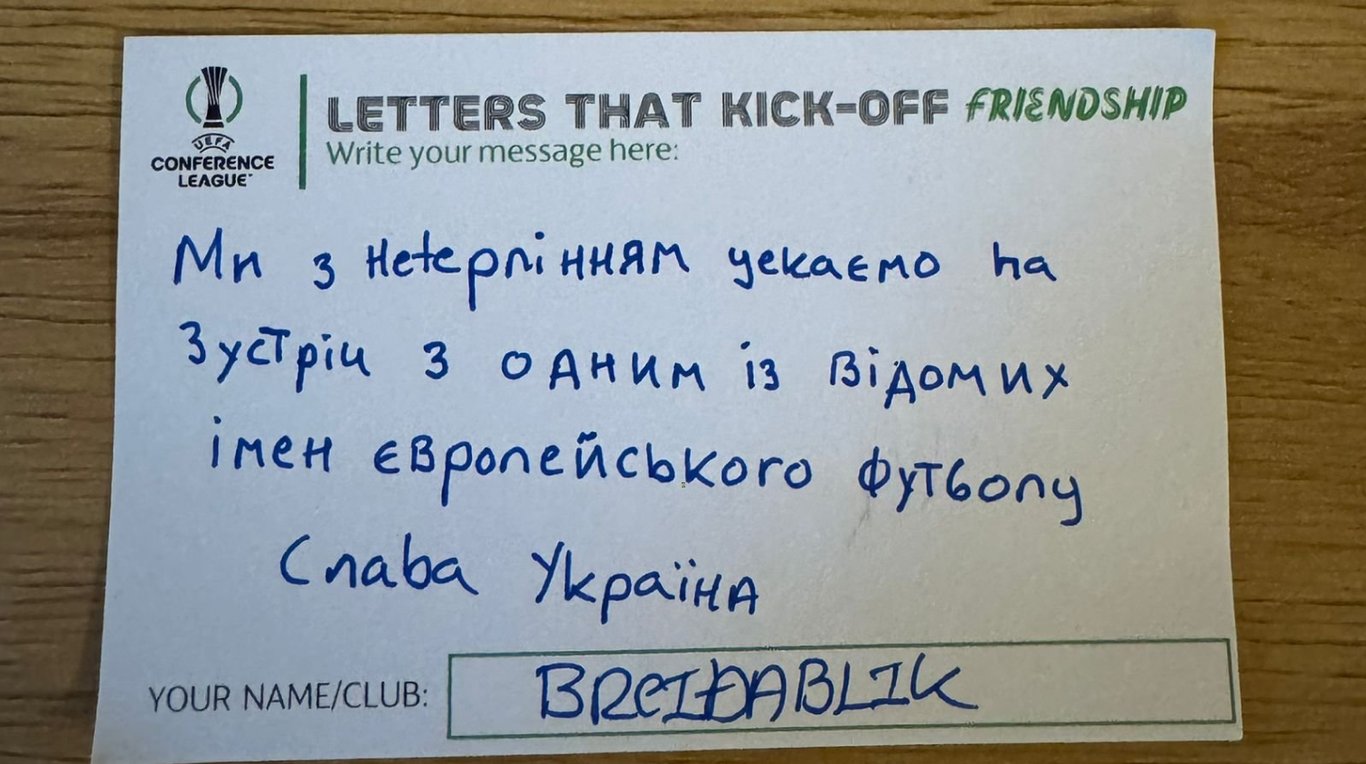 UEFA
CONFERENCE
LEAGUE
LETTERS THAT KICK-OFF FRIENDSHIP
Write your message here:
Ми з нетерпінням чекаємо на
Зустріч з одним із відомих
імен європейського футболу
Слава Україна
YOUR NAME/CLUB:
BREIÐABLIK